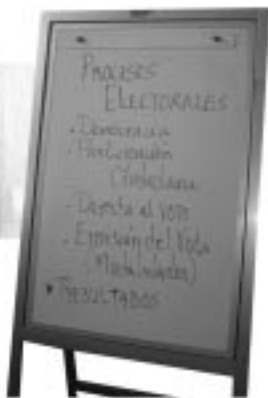 PROCESOS
ELECTORALES
• Democracia
• Participación
Ciudadana
- Derecho al VOTO
- Emisión del Voto
• RESULTADOS